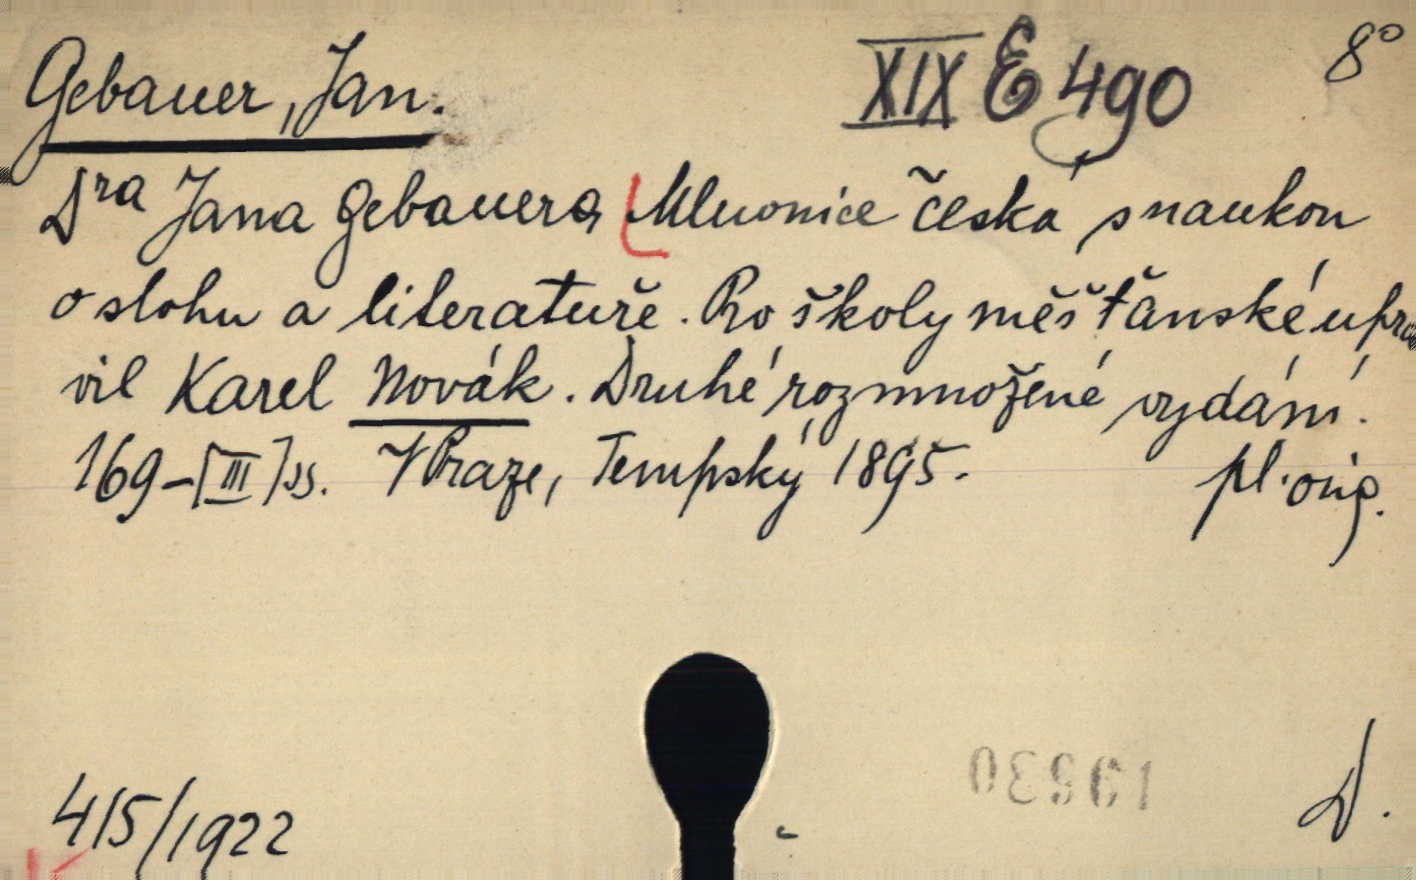 Gebauer, Jan.
XIX E 490
8°
Dra Jana Gebauera Mluvnice česká s naukou
o slohu a literatuře. Pro školy měšťanské upra
vil Karel Novák. Druhé rozmnožené vydání.
169-[III] ss. V Praze, Tempský 1895.
pl. orig.
415/1922
D.